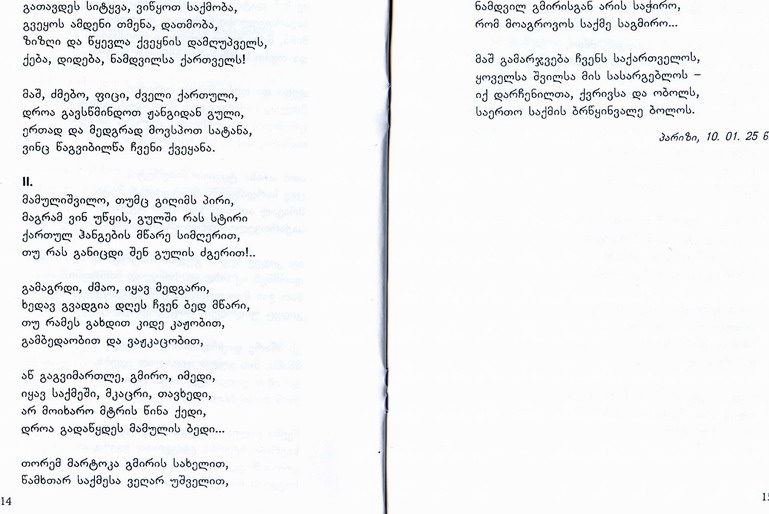 გათავდეს სიტყვა, ვიწყოთ საქმობა,
გვეყოს ამდენი თმენა, დათმობა,
ზიზღი და წყევლა ქვეყნის დამღუპველს,
ქება, დიდება, ნამდვილსა ქართველს!
მაშ, ძმებო, ფიცი, ძველი ქართული,
დროა გავსწმინდოთ ჟანგიდან გული,
ერთად და მედგრად მოვსპოთ სატანა,
ვინც წაგვიბილწა ჩვენი ქვეყანა.
II.
მამულიშვილო, თუმც გიღიმს პირი,
მაგრამ ვინ უწყის, გულში რას სტირი
ქართულ ჰანგების მწარე სიმღერით,
თუ რას განიცდი შენ გულის ძგერით!..
გამაგრდი, ძმაო, იყავ მედგარი,
ხედავ გვადგია დღეს ჩვენ ბედ მწარი,
თუ რამეს გახდით კიდე კაჟობით,
გამბედაობით და ვაჟკაცობით,
აწ გაგვიმართლე, გმირო, იმედი,
იყავ საქმეში, მკაცრი, თავხედი,
არ მოიხარო მტრის წინა ქედი,
დროა გადაწყდეს მამულის ბედი...
თორემ მარტოკა გმირის სახელით,
წამხთარ საქმესა ვეღარ უშველით,
14
ნამდვილ გმირისგან არის საჭირო,
რომ მოაგროვოს საქმე საგმირო...
მაშ გამარჯვება ჩვენს საქართველოს,
ყოველსა შვილსა მის სასარგებლოს –
იქ დარჩენილთა, ქვრივსა და ობოლს,
საერთო საქმის ბრწყინვალე ბოლოს.
პარიზი, 10. 01. 25
15